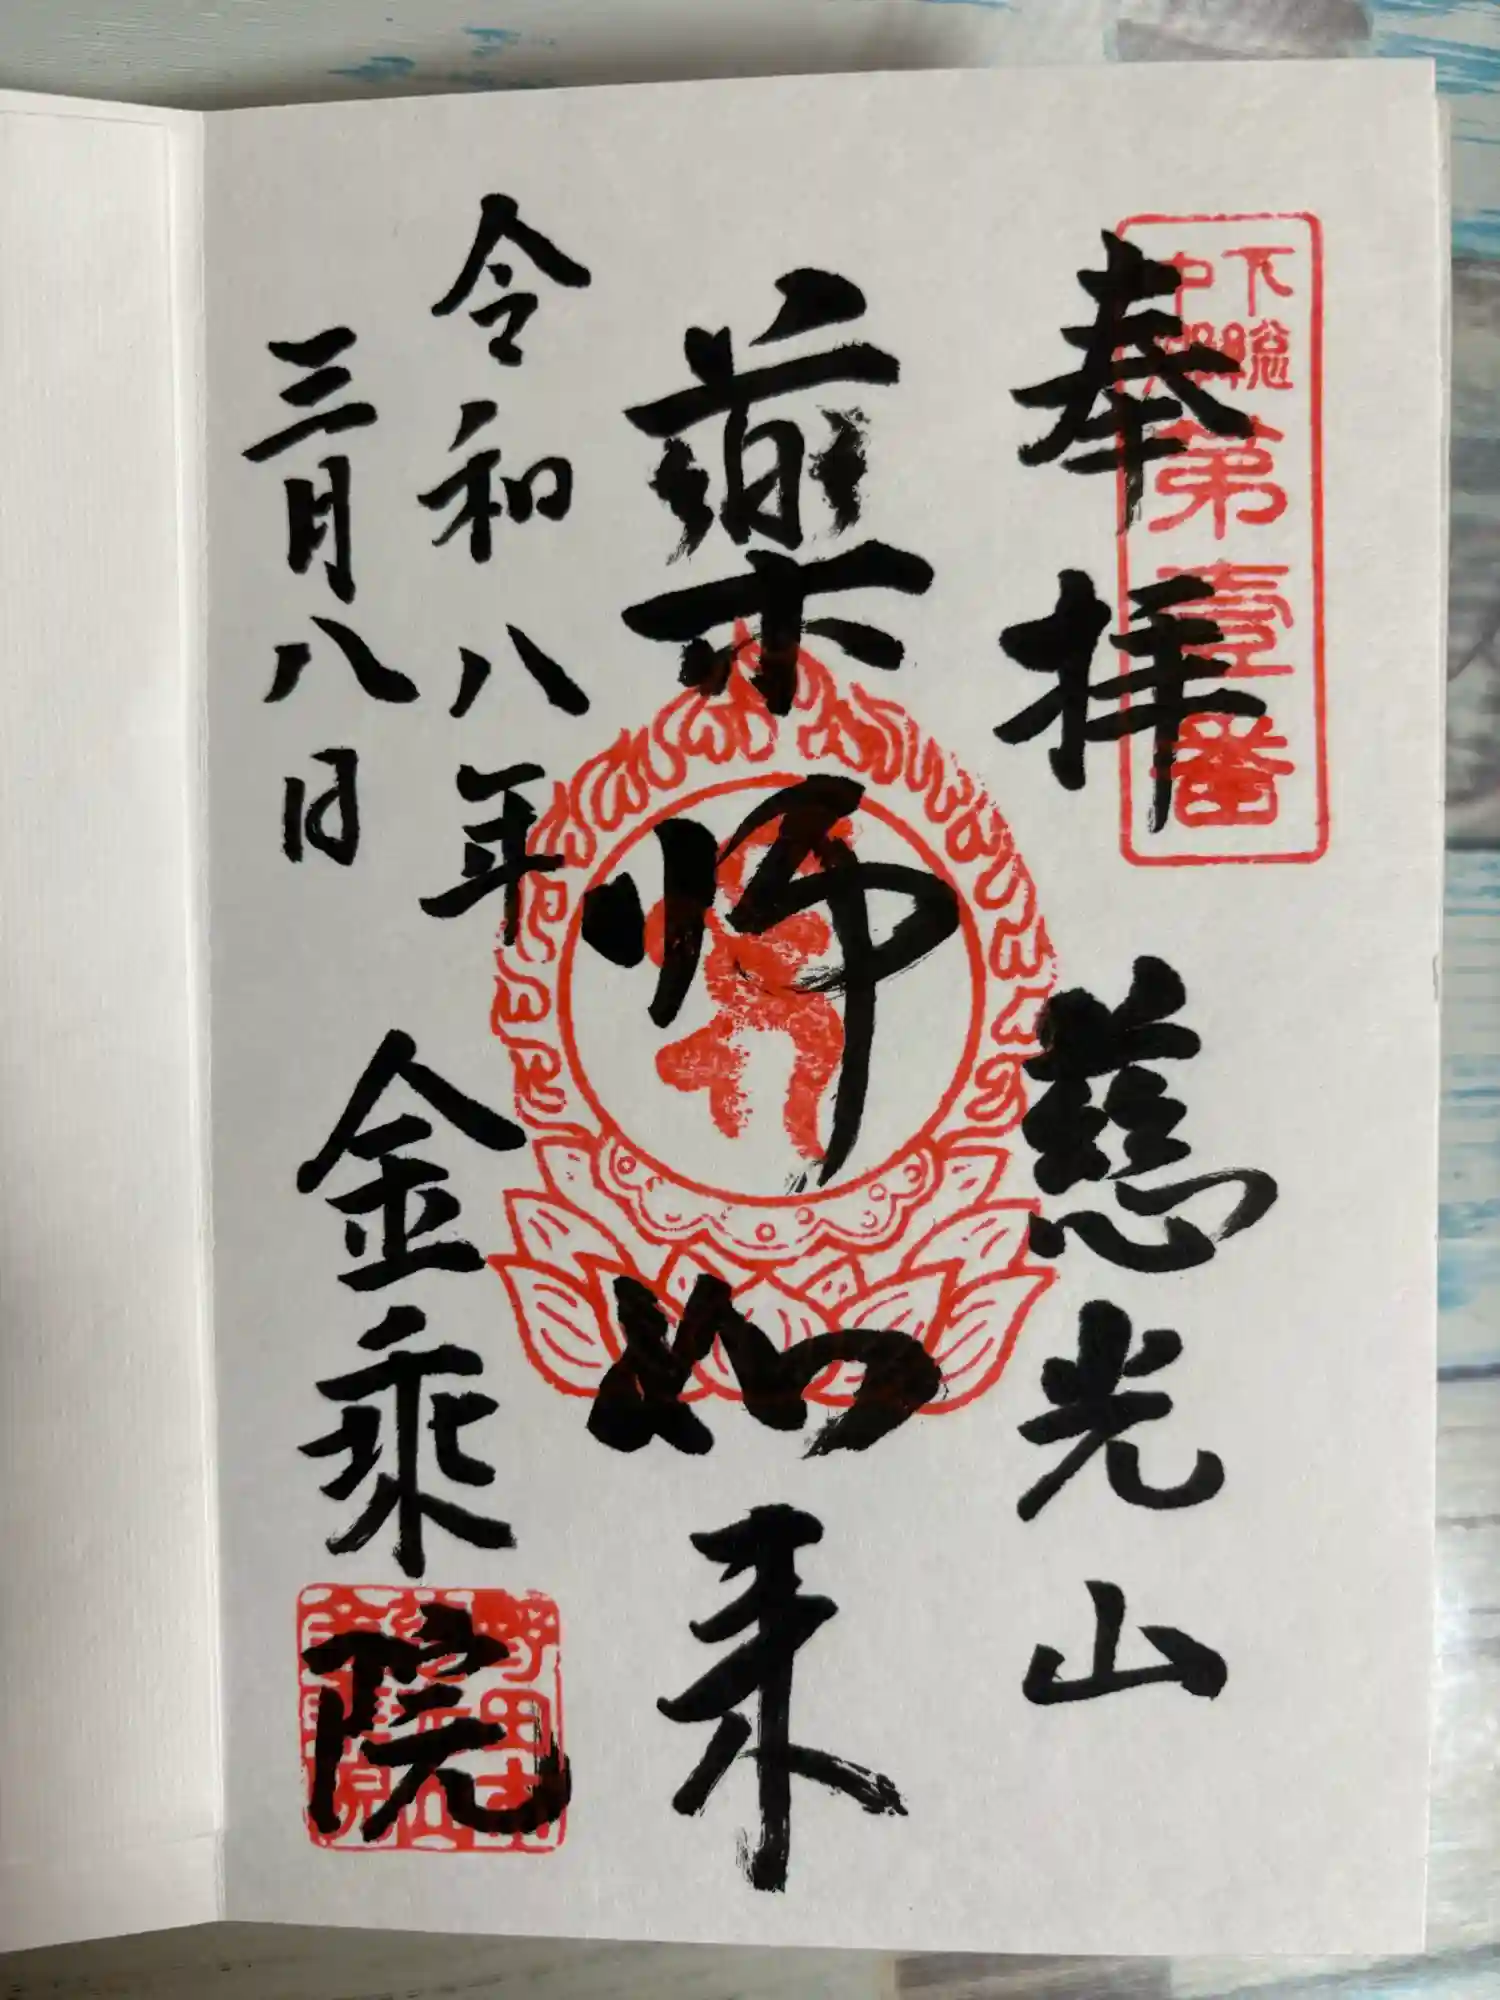 奉拝
慈光山
下総
第壱番
薬師如来
令和八年
三月八日
金乗院